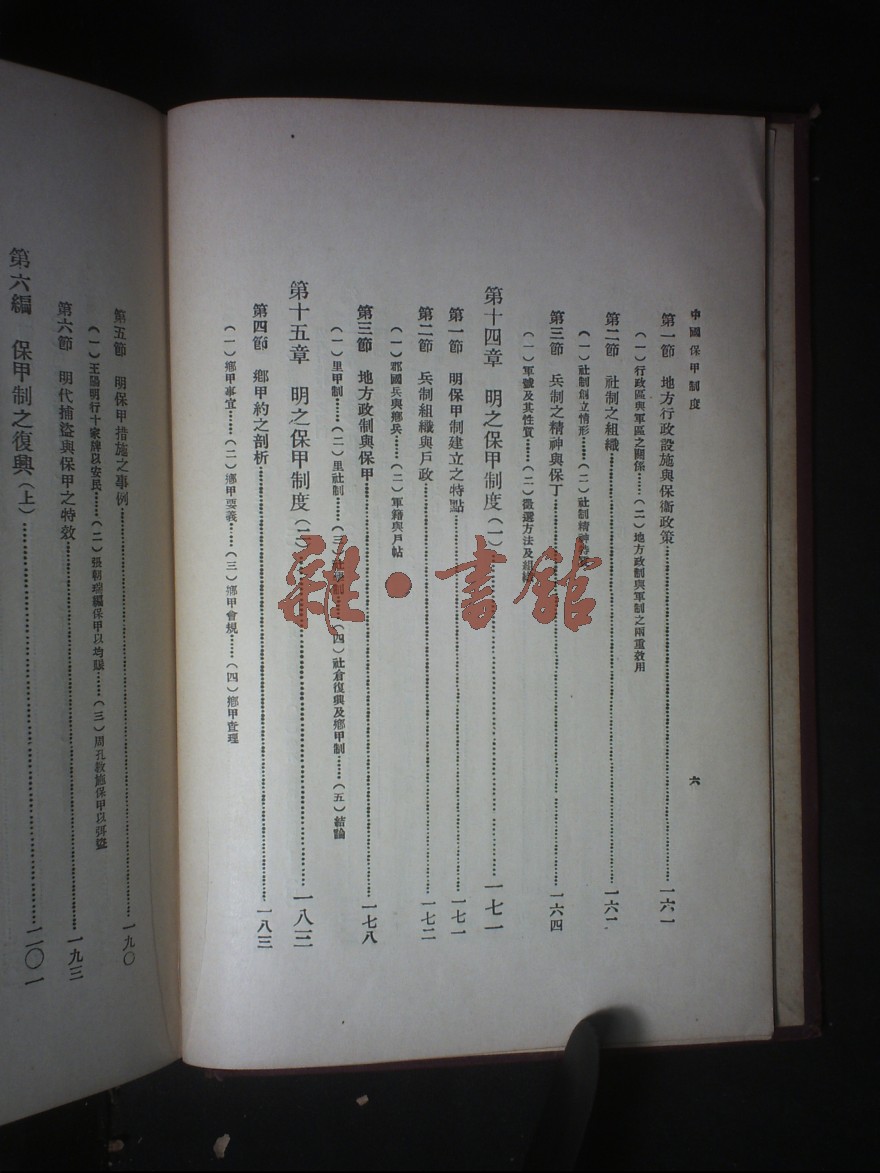 中國保甲制度
六
第一節　地方行政設施與保衞政策……一六一
（一）行政區與軍區之關係……（二）地方政制與軍制之兩重效用
第二節　社制之組織……一六二
（一）社制創立情形……（二）社制精神
第三節　兵制之精神與保丁……一六四
（一）軍號及其性質……（二）徵選方法及組織
第十四章　明之保甲制度（一）……一七一
第一節　明保甲制建立之特點……一七一
第二節　兵制組織與戶政……一七二
（一）郡國兵與鄉兵……（二）軍籍與戶帖
第三節　地方政制與保甲……一七八
（一）里甲制……（二）里社制……（三）社學制……（四）社倉復興及鄉甲制……（五）結論
第十五章　明之保甲制度（二）……一八三
第四節　鄉甲約之剖析……一八三
（一）鄉甲事宜……（二）鄉甲要義……（三）鄉甲會規……（四）鄉甲查理
第五節　明保甲措施之事例……一九〇
（一）王陽明行十家牌以安民……（二）張朝瑞編保甲以均賑……（三）周孔教施保甲以弭盜
第六節　明代捕盜與保甲之特效……一九三
第六編　保甲制之復興（上）……二〇一
雜·書館